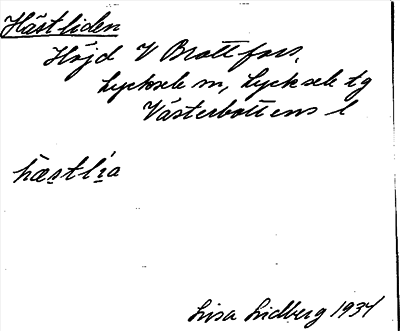 Hästliden
Höjd V Brattfors,
Lycksele sn, Lycksele tg
Västerbottens l
hæstlia
Lisa Lidberg 1934